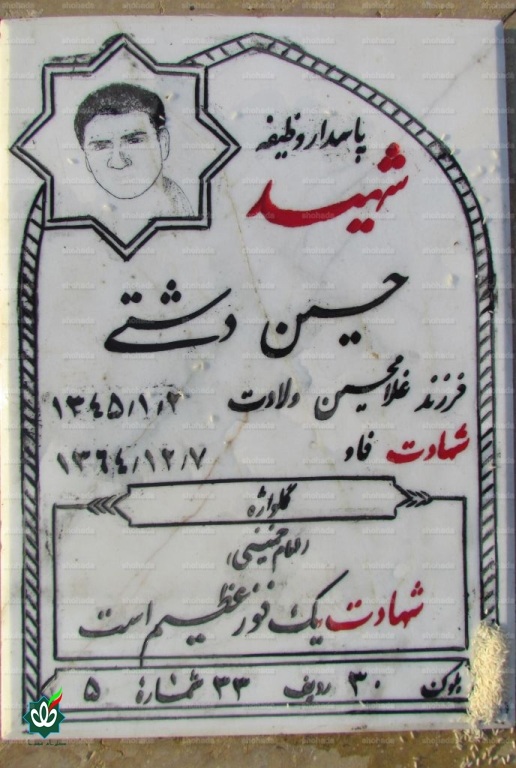 پاسدار وظیفه
شهید
حسین دشتی
فرزند غلامحسین ولادت ۱۳۴۵/۱/۲
شهادت فاو ۱۳۶۴/۱۲/۷
گلواژه
(امام خمینی)
شهادت یک فوز عظیم است
بلوک ۳۰ ردیف ۳۳ شمارهٔ ۵